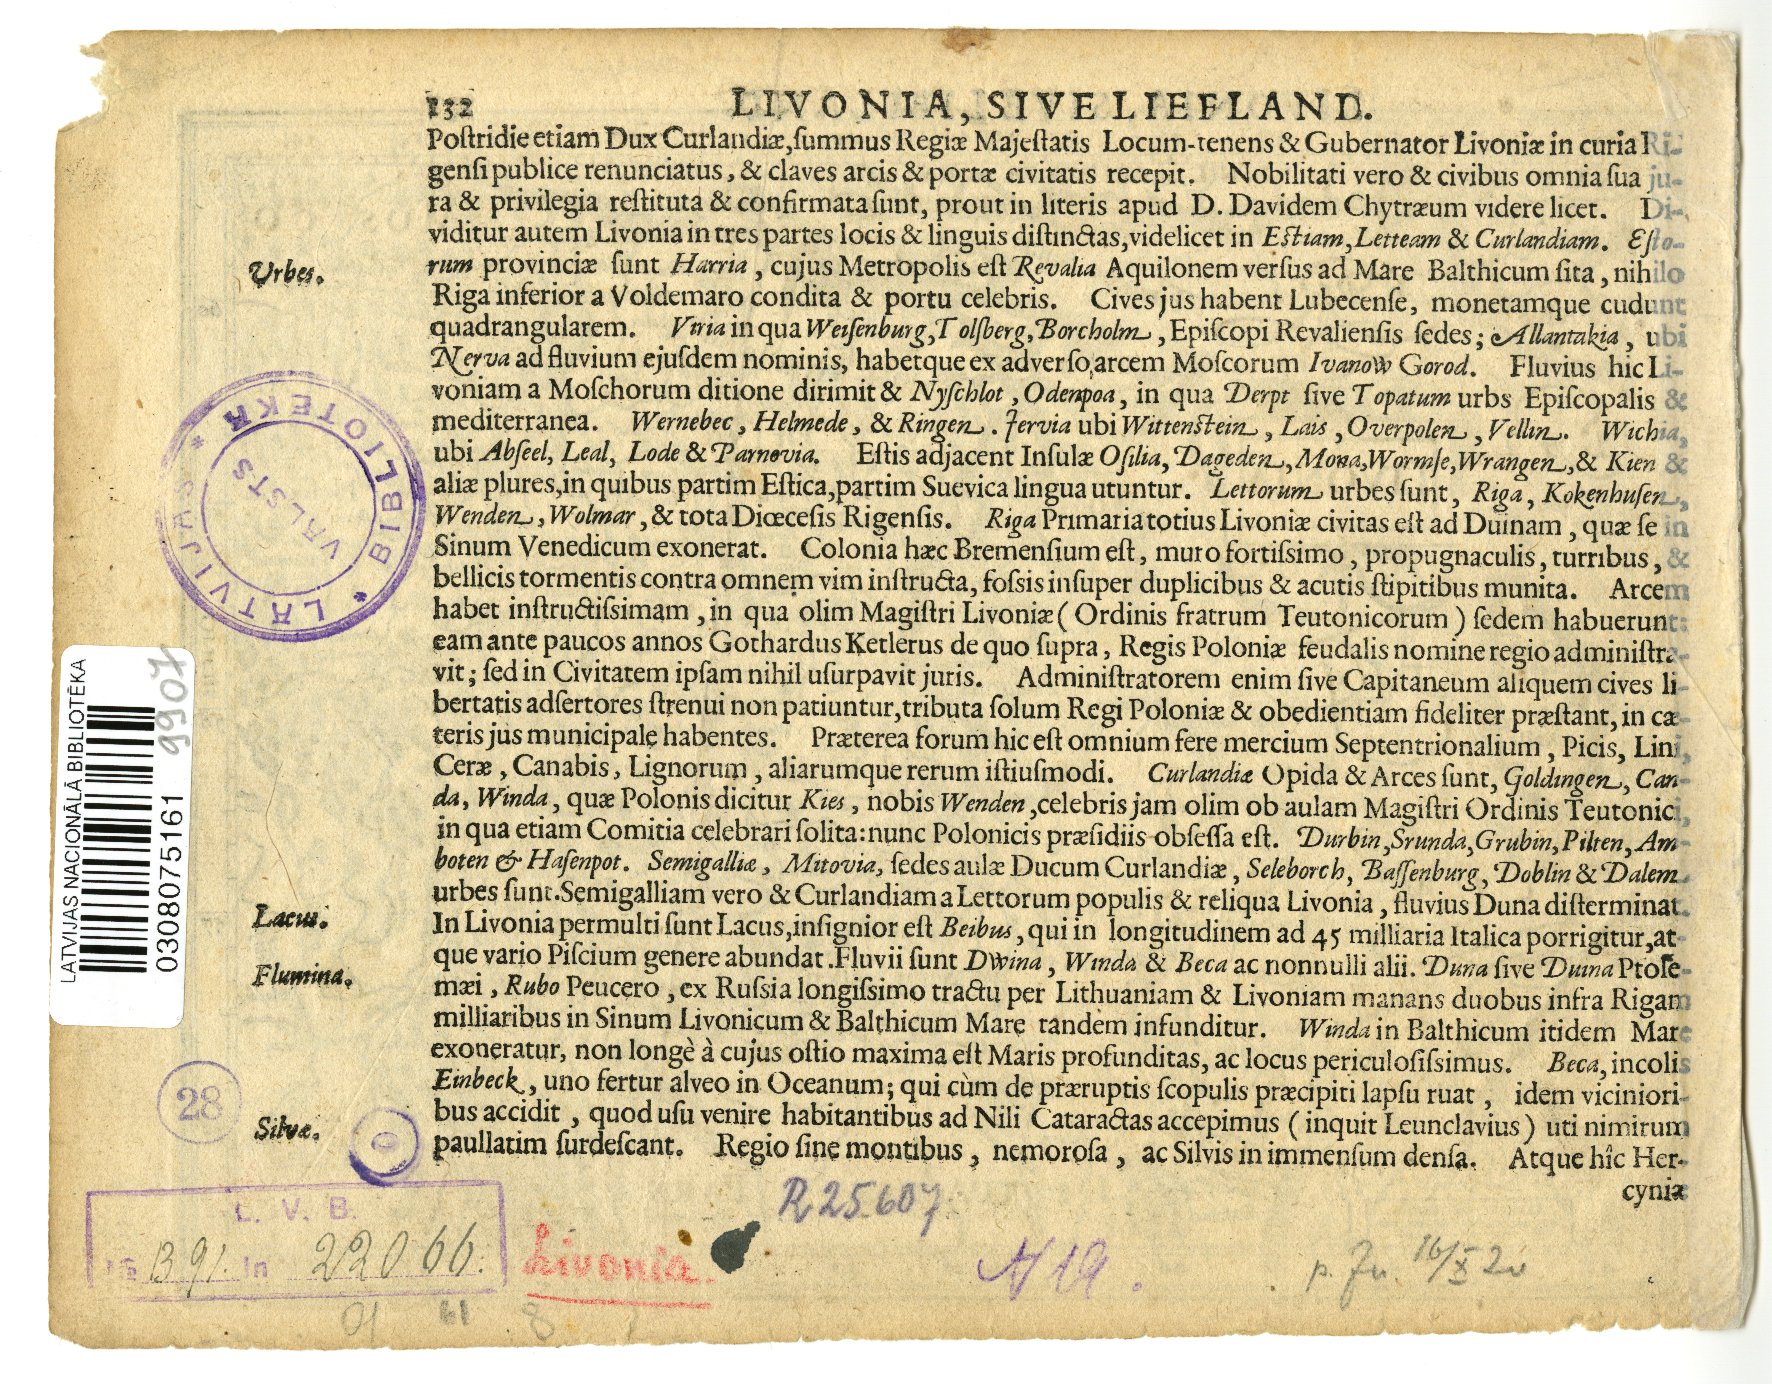 132 LIVONIA, SIVE LIEFLAND.
Poſtridie etiam Dux Curlandiæ, ſummus Regiæ Majeſtatis Locum-tenens & Gubernator Livoniæ in curia Ri-
genſi publice renunciatus, & claves arcis & portæ civitatis recepit. Nobilitati vero & civibus omnia ſua ju-
ra & privilegia reſtituta & confirmata ſunt, prout in literis apud D. Davidem Chytræum videre licet. Di-
viditur autem Livonia in tres partes locis & linguis diſtinctas, videlicet in Eſtiam, Letteam & Curlandiam. Eſto-
Urbes.
rum provinciæ ſunt Harria, cujus Metropolis eſt Revalia Aquilonem verſus ad Mare Balthicum ſita, nihilo
Riga inferior a Voldemaro condita & portu celebris. Cives jus habent Lubecenſe, monetamque cudunt
quadrangularem. Viria in qua Weiſenburg, Tolſberg, Borcholm, Epiſcopi Revalienſis ſedes; Allantakia, ubi
Nerva ad fluvium ejuſdem nominis, habetque ex adverſo arcem Moſcorum Ivanow Gorod. Fluvius hic Li-
voniam a Moſchorum ditione dirimit & Nyſchlot, Odenpoa, in qua Derpt ſive Topatum urbs Epiſcopalis &
mediterranea. Wernebec, Helmede, & Ringen. Jervia ubi Wittenſtein, Lais, Overpolen, Vellin. Wichia,
ubi Abſeel, Leal, Lode & Parnovia. Eſtis adjacent Inſulæ Oſilia, Dageden, Mona, Wormſe, Wrangen, & Kien &
aliæ plures, in quibus partim Eſtica, partim Suevica lingua utuntur. Lettorum urbes ſunt, Riga, Kokenhuſen,
Wenden, Wolmar, & tota Diœceſis Rigenſis. Riga Primaria totius Livoniæ civitas eſt ad Duinam, quæ ſe in
Sinum Venedicum exonerat. Colonia hæc Bremenſium eſt, muro fortiſsimo, propugnaculis, turribus, &
bellicis tormentis contra omnem vim inſtructa, foſsis inſuper duplicibus & acutis ſtipitibus munita. Arcem
habet inſtructiſsimam, in qua olim Magiſtri Livoniæ (Ordinis fratrum Teutonicorum) ſedem habuerunt:
eam ante paucos annos Gothardus Ketlerus de quo ſupra, Regis Poloniæ feudalis nomine regio adminiſtra-
vit; ſed in Civitatem ipſam nihil uſurpavit juris. Adminiſtratorem enim ſive Capitaneum aliquem cives li-
bertatis adſertores ſtrenui non patiuntur, tributa ſolum Regi Poloniæ & obedientiam fideliter præſtant, in cæ-
teris jus municipale habentes. Præterea forum hic eſt omnium fere mercium Septentrionalium, Picis, Lini,
Ceræ, Canabis, Lignorum, aliarumque rerum iſtiuſmodi. Curlandiæ Opida & Arces ſunt, Goldingen, Can-
da, Winda, quæ Polonis dicitur Kies, nobis Wenden, celebris jam olim ob aulam Magiſtri Ordinis Teutonici,
in qua etiam Comitia celebrari ſolita: nunc Polonicis præſidiis obſeſſa eſt. Durbin, Srunda, Grubin, Pilten, Am-
boten & Haſenpot. Semigalliæ, Mitovia, ſedes aulæ Ducum Curlandiæ, Seleborch, Baſſenburg, Doblin & Dalem
urbes ſunt. Semigalliam vero & Curlandiam a Lettorum populis & reliqua Livonia, fluvius Duna diſterminat.
Lacus.
In Livonia permulti ſunt Lacus, inſignior eſt Beibus, qui in longitudinem ad 45 milliaria Italica porrigitur, at-
que vario Piſcium genere abundat. Fluvii ſunt Dwina, Winda & Beca ac nonnulli alii. Duna ſive Duina Ptole-
Flumina.
mæi, Rubo Peucero, ex Ruſsia longiſsimo tractu per Lithuaniam & Livoniam manans duobus infra Rigam
milliaribus in Sinum Livonicum & Balthicum Mare tandem infunditur. Winda in Balthicum itidem Mare
exoneratur, non longè à cujus oſtio maxima eſt Maris profunditas, ac locus periculoſiſsimus. Beca, incolis
Einbeck, uno fertur alveo in Oceanum; qui cùm de præruptis ſcopulis præcipiti lapſu ruat, idem viciniori-
bus accidit, quod uſu venire habitantibus ad Nili Cataractas accepimus (inquit Leunclavius) uti nimirum
Silvæ.
paullatim ſurdeſcant. Regio ſine montibus, nemoroſa, ac Silvis in immenſum denſa. Atque hîc Her-
cyniæ
* LATVIJAS * BIBLIOTEKA
VALSTS
LATVIJAS NACIONĀLĀ BIBLIOTĒKA
0308075161
9907
28
0
L. V. B.
B 91. In 22066.
Livonia.
R 25607
N 19.
91 61 8